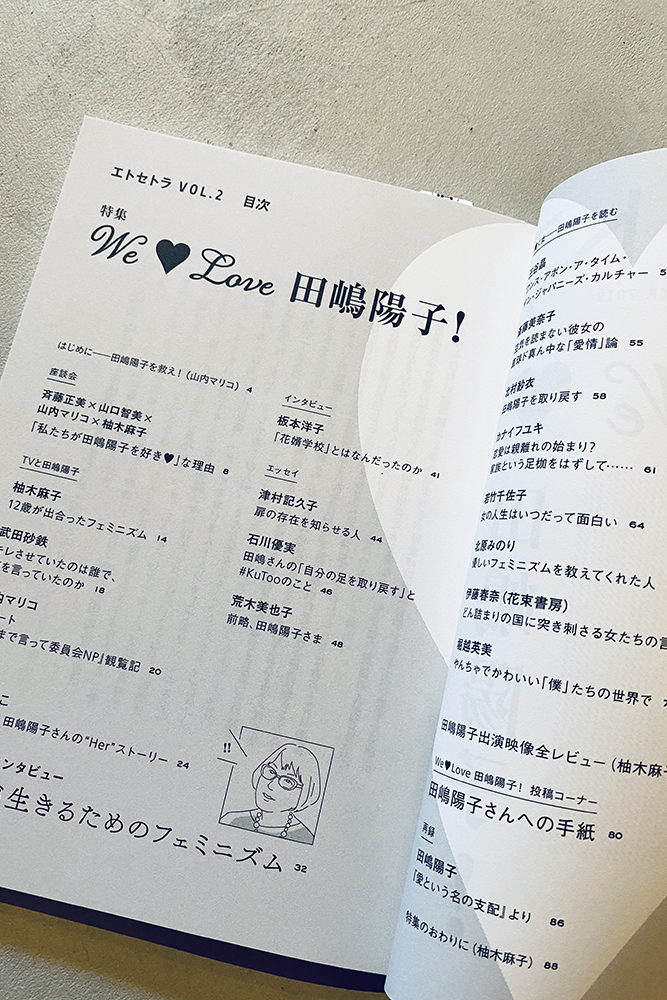 エトセトラ VOL.2 目次
特集
We ♥ Love 田嶋陽子!
はじめに——田嶋陽子を救え!（山内マリコ） 4
座談会
斉藤正美×山口智美×
山内マリコ×柚木麻子
「私たちが田嶋陽子を好き♥」な理由 8
TVと田嶋陽子
柚木麻子
12歳が出合ったフェミニズム 14
武田砂鉄
レさせていたのは誰で、
を言っていたのか 18
マリコ
ート
まで言って委員会NP』観覧記 20
こ
田嶋陽子さんの“Her”ストーリー 24
ンタビュー
生きるためのフェミニズム 32
!!
インタビュー
板本洋子
「花婿学校」とはなんだったのか 41
エッセイ
津村記久子
扉の存在を知らせる人 44
石川優実
田嶋さんの「自分の足を取り戻す」と
#KuTooのこと 46
荒木美也子
前略、田嶋陽子さま 48
——田嶋陽子を読む
ンス・アポン・ア・タイム・
イン・ジャパニーズ・カルチャー 5
斎藤美奈子
空気を読まない彼女の
直球ド真ん中な「愛情」論 55
北村紗衣
田嶋陽子を取り戻す 58
カナイフユキ
恋愛は親離れの始まり?
家族という足枷をはずして…… 61
若竹千佐子
女の人生はいつだって面白い 64
北原みのり
優しいフェミニズムを教えてくれた人
伊藤春奈（花束書房）
どん詰まりの国に突き刺さる女たちの言
堀越英美
やんちゃでかわいい「僕」たちの世界で
田嶋陽子出演映像全レビュー（柚木麻子
We♥Love 田嶋陽子! 投稿コーナー
田嶋陽子さんへの手紙 80
再録
田嶋陽子
『愛という名の支配』より 86
特集のおわりに（柚木麻子） 88